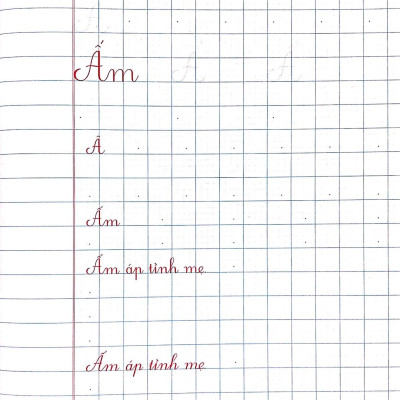 Ấm
Â
Ấm
Ấm áp tình mẹ
Ấm áp tình mẹ